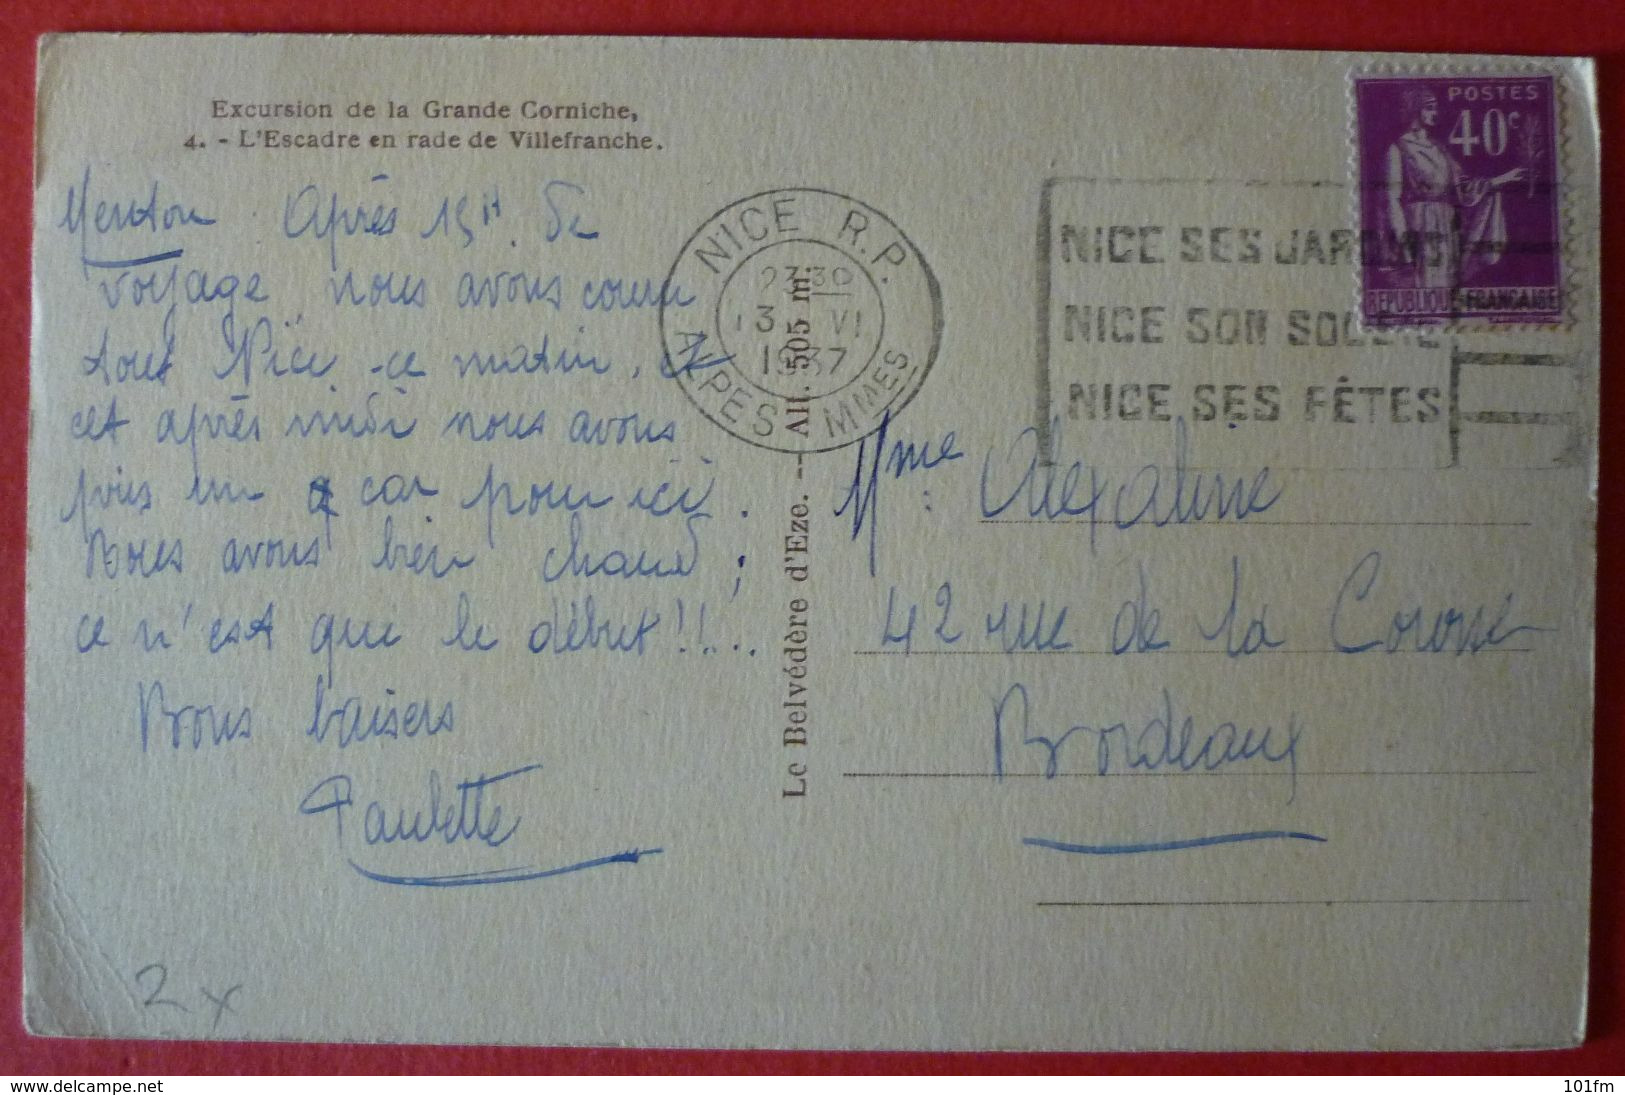 Excursion de la Grande Corniche,
4. - L'Escadre en rade de Villefranche.
Menton. Après 15H. de
voyage, nous avons couru
tout Nice ce matin, et
cet après midi nous avons
pris un car pour ici.
Nous avons bien chaud ;
ce n'est que le début!!...
Bons baisers
Paulette
2x
Le Belvédère d'Eze. -- Alt. 505 m.
NICE R.P.
23 30
13 VI
1937
ALPES MMES
NICE SES JARDINS
NICE SON SOLEIL
NICE SES FÊTES
POSTES
40c
REPUBLIQUE FRANCAISE
Mme: Alexaline
42 rue de la
Bordeaux
delcampe.net
101fm